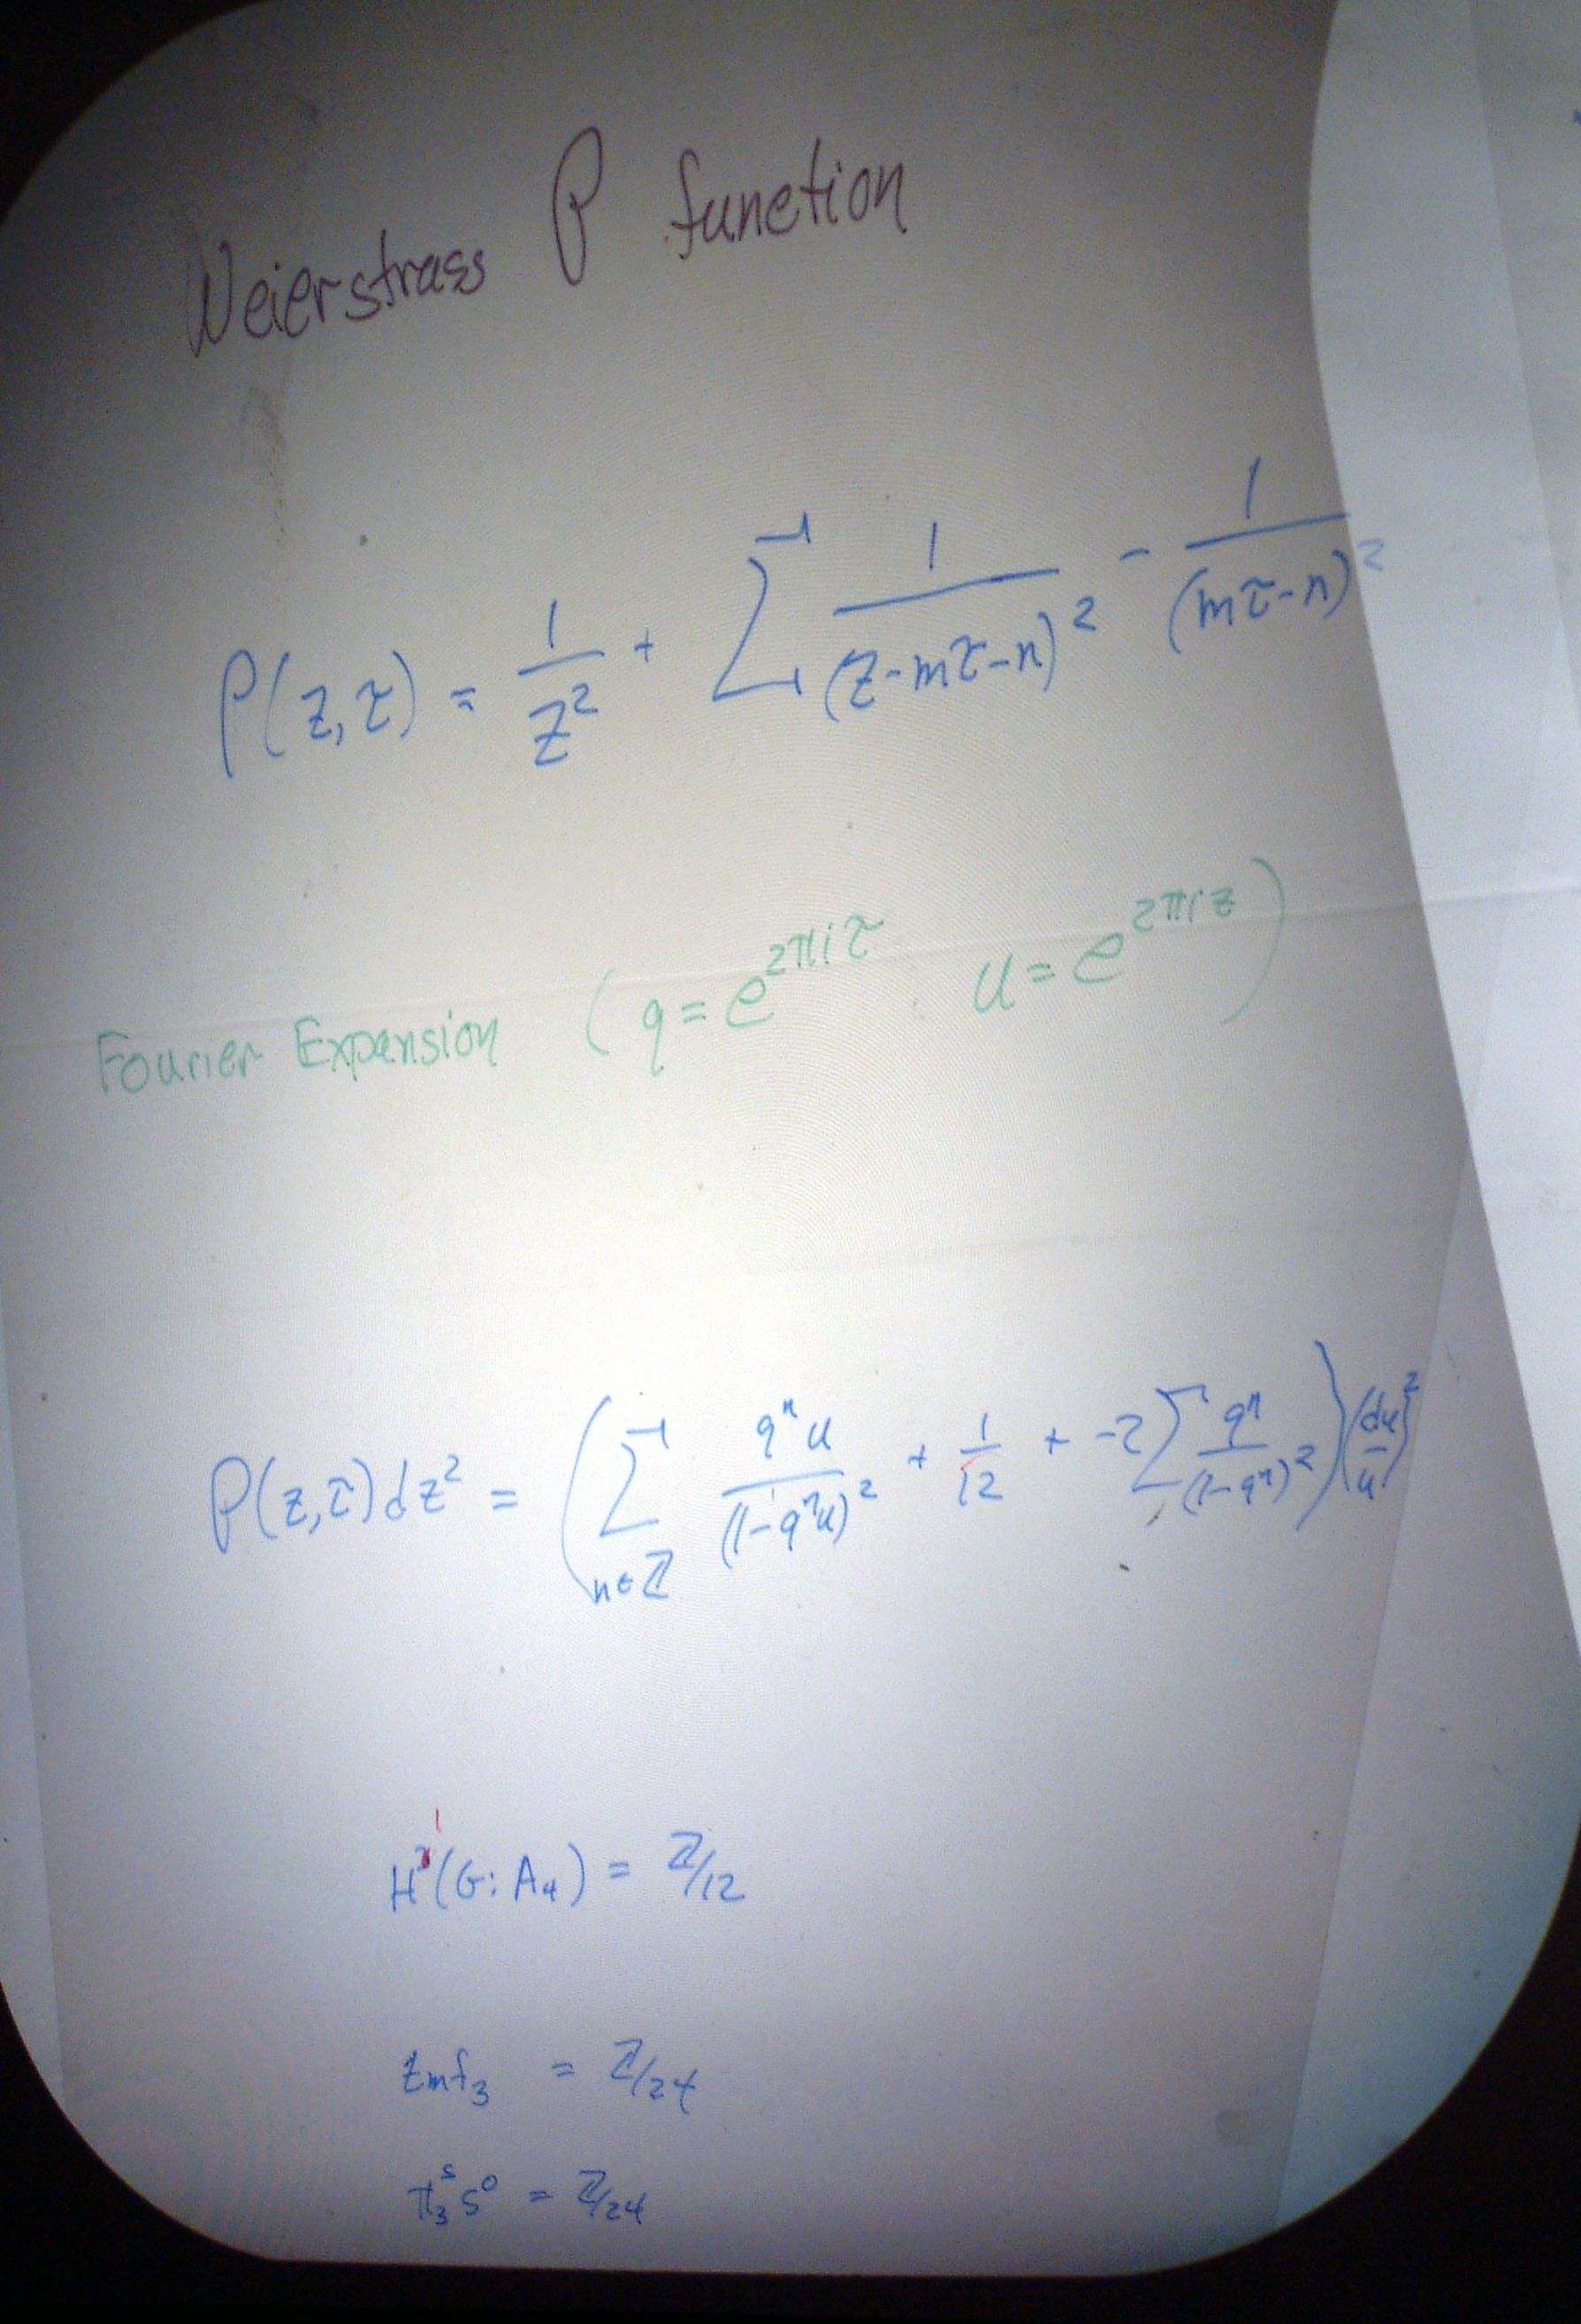 Weierstrass ℘ function
℘(z,τ) = 1/z² + ∑ 1/(z-mτ-n)² - 1/(mτ-n)²
Fourier Expansion ( q = e^{2πiτ} u = e^{2πiz} )
℘(z,τ)dz² = ( ∑_{n∈ℤ} qⁿu/(1-qⁿu)² + 1/12 + -2∑ qⁿ/(1-qⁿ)² ) (du/u)²
H¹(G; A₄) = ℤ/12
tmf₃ = ℤ/24
π₃ˢ S⁰ = ℤ/24